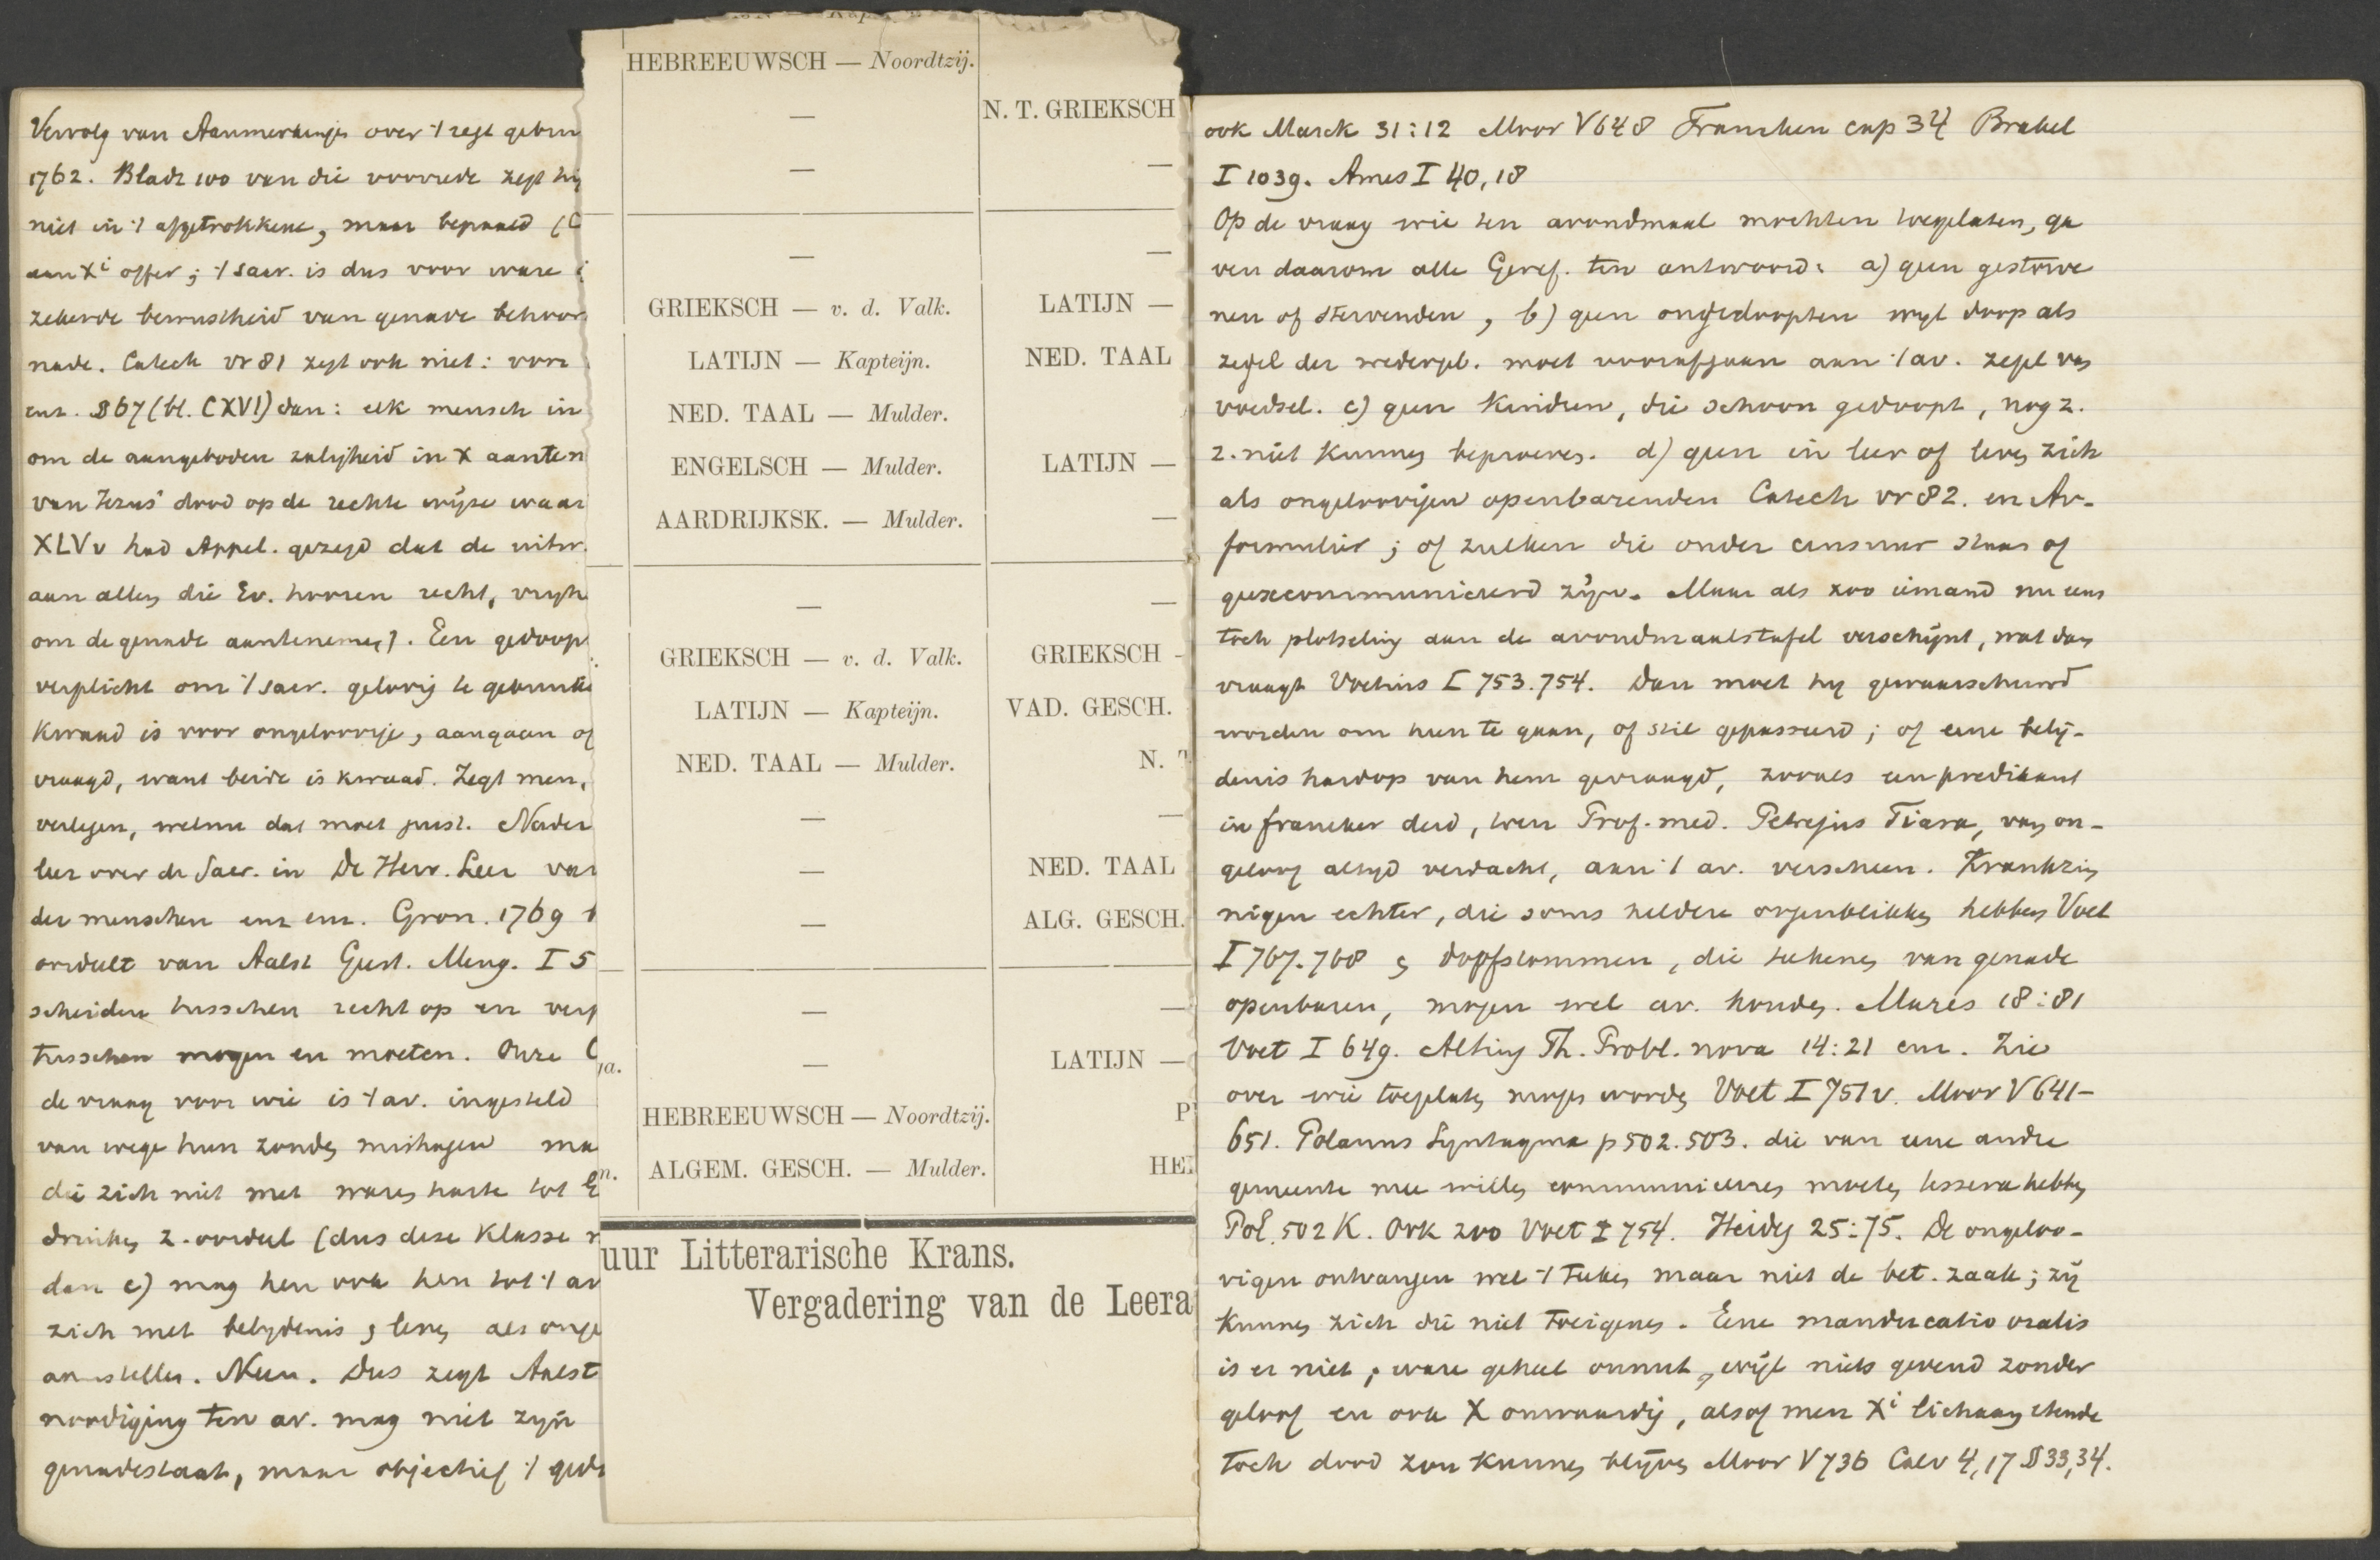 Vervolg van Aanmerkinge over 't regt gebru
1762. Bladz 100 van die voorrede zegt hij
niet in 't afgetrokkene, maar bepaald (C
aan Xi offer; 't sacr. is dus voor ware
zekerde bewustheid van genade behoor
nade. Catech vr 81 zegt ook niet: voor
enz. §67 (bl. CXVI) dan: elk mensch in
om de aangeboden zaligheid in X aanten
van Jezus' dood op de rechte wijze waar
XLVv had Appel. gezegd dat de uitw.
aan allen die Ev. hooren recht, vrijh
om de genade aantenemen). Een gedoop
verplicht om 't sacr. gelovig te gebruike
Kwaad is voor ongeloovige, aangaan of
vraagd, want beide is kwaad. Zegt men,
verlegen, welnu dat moet juist. Nader
leer over de Sacr. in De Herv. Leer van
der menschen enz enz. Gron. 1769
oordeelt van Aalst Geest. Meng. I 5
scheiden tusschen recht op en verp
tusschen mogen en moeten. Onze C
de vraag voor wie is 't av. ingesteld
van wege hun zonden mishagen ma
die zich niet met waren harte tot G
drinken z. oordeel (dus deze Klasse
dan c) mag hen ook hen tot 't av
zich met belydenis , leven als onge
aanstellen. Neen. Dus zegt Aalst
noodiging ten av. mag niet zijn
genadestaat, maar objectief 't ged
HEBREEUWSCH — Noordtzij.
—
—
—
GRIEKSCH — v. d. Valk.
LATIJN — Kapteijn.
NED. TAAL — Mulder.
ENGELSCH — Mulder.
AARDRIJKSK. — Mulder.
—
GRIEKSCH — v. d. Valk.
LATIJN — Kapteijn.
NED. TAAL — Mulder.
—
—
—
—
—
HEBREEUWSCH — Noordtzij.
ALGEM. GESCH. — Mulder.
N. T. GRIEKSCH
—
—
LATIJN —
NED. TAAL
LATIJN —
—
—
GRIEKSCH -
VAD. GESCH.
N. T
—
NED. TAAL
ALG. GESCH.
—
LATIJN —
P
HE
ja.
n.
uur Litterarische Krans.
Vergadering van de Leera
ook Marck 31:12 Moor V 648 Francken cap 34 Brakel
I 1039. Ames I 40,18
Op de vraag wie ten avondmaal mochten toegelaten, ga
ven daarom alle Geref. ten antwoord: a) geen gestorve
nen of stervenden, b) geen ongedoopten wijl doop als
zegel der wedergeb. moet voorafgaan aan 't av. zegel van
voedsel. c) geen Kinderen, die schoon gedoopt, nog z.
z. niet kunnen beproeven. d) geen in leer of leven zich
als ongeloovigen openbarenden Catech vr 82. en Av.
formulier; of zulken die onder censuur staan of
geexcommuniceerd zijn. Maar als zoo iemand nu eens
toch plotseling aan de avondmaalstafel verschijnt, wat dan
vraagt Voetius I 753.754. Dan moet hij gewaarschuwd
worden om heen te gaan, of stil gepasseerd; of eene belij-
denis hardop van hem gevraagd, zooals een predikant
in franeker deed, toen Prof. med. Petrejus Tiara, van on-
geloof altijd verdacht, aan 't av. verscheen. Krankzin
nigen echter, die soms heldere oogenblikken hebben Voet
I 767.768 , doofstommen, die teekenen van genade
openbaren, mogen wel av. houden. Mares 18:81
Voet I 649. Alting Th. Probl. nova 14:21 enz. Zie
over wie toegelaten mogen worden Voet I 751v. Moor V 641-
651. Polanus Syntagma p 502.503. die van eene andre
gemeente mee willen communiceeren moeten tessera hebben
Pol. 502 K. Ook zoo Voet I 754. Heideg 25:75. De ongeloo-
vigen ontvangen wel 't Teeken maar niet de bet. zaak; zij
Kunnen zich die niet toeigenen. Eene manducatio oralis
is er niet, ware geheel onnut, wijl niets gevend zonder
geloof en ook X onwaardig, alsof men Xi lichaam etende
toch dood zou kunnen blijven Moor V 736 Calv 4,17 § 33,34.